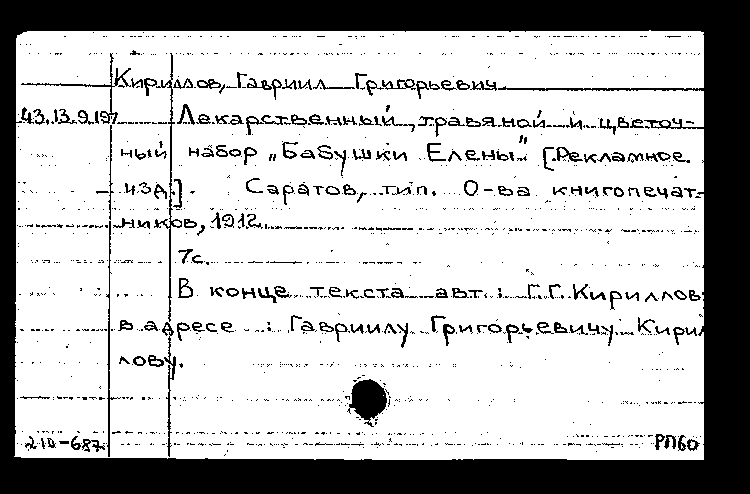 Кириллов, Гавриил Григорьевич.
43.13.9.197 Лекарственный, травяной и цветоч-
ный набор „Бабушки Елены". [Рекламное
изд.]. Саратов, тип. О-ва книгопечат-
ников, 1912.
7с.
В конце текста авт.: Г.Г. Кириллов:
в адресе : Гавриилу Григорьевичу Кирил
лову.
210-687. РП60